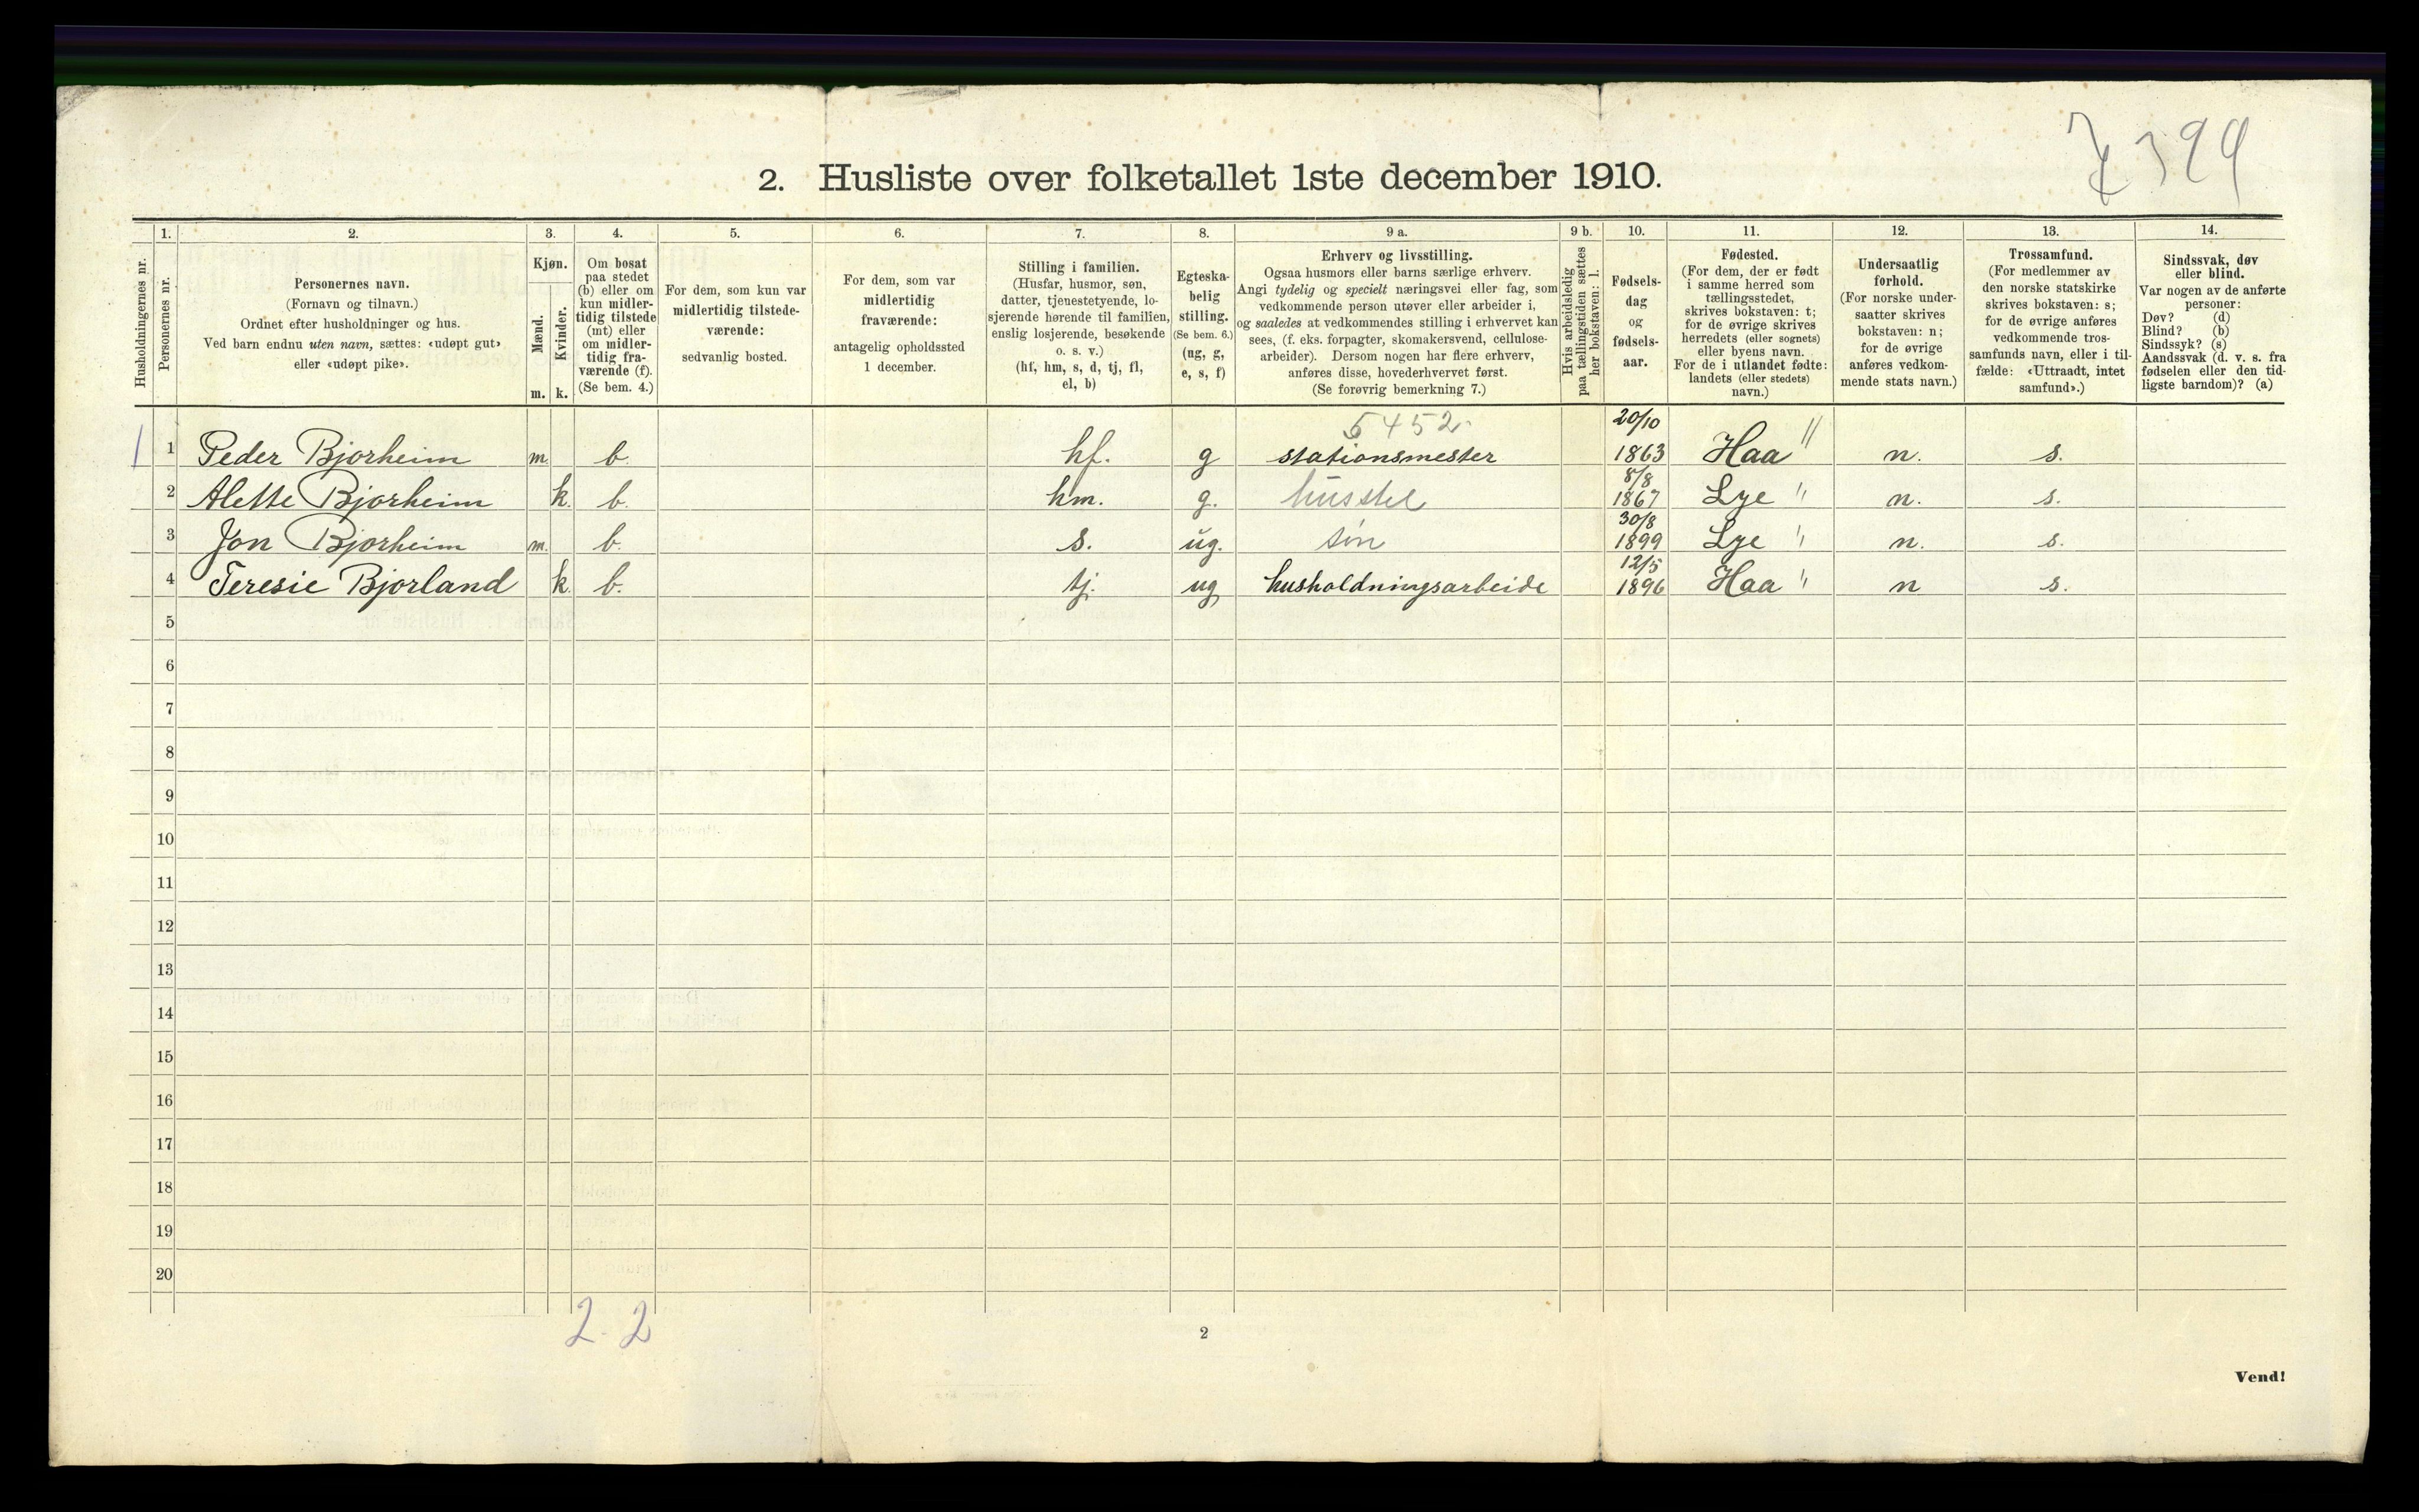 7399
2. Husliste over folketallet 1ste december 1910.
Husholdningernes nr.
1.
Personernes nr.
2.
Personernes navn.
(Fornavn og tilnavn.)
Ordnet efter husholdninger og hus.
Ved barn endnu uten navn, sættes: «udøpt gut»
eller «udøpt pike».
3.
Kjøn.
Mænd.
Kvinder.
m. k.
4.
Om bosat
paa stedet
(b) eller om
kun midler-
tidig tilstede
(mt) eller
om midler-
tidig fra-
værende (f).
(Se bem. 4.)
5.
For dem, som kun var
midlertidig tilstede-
værende:
sedvanlig bosted.
6.
For dem, som var
midlertidig
fraværende:
antagelig opholdssted
1 december.
7.
Stilling i familien.
(Husfar, husmor, søn,
datter, tjenestetyende, lo-
sjerende hørende til familien,
enslig losjerende, besøkende
o. s. v.)
(hf, hm, s, d, tj, fl,
el, b)
8.
Egteska-
belig
stilling.
(Se bem. 6.)
(ug, g,
e, s, f)
9 a.
Erhverv og livsstilling.
Ogsaa husmors eller barns særlige erhverv.
Angi tydelig og specielt næringsvei eller fag, som
vedkommende person utøver eller arbeider i,
og saaledes at vedkommendes stilling i erhvervet kan
sees, (f. eks. forpagter, skomakersvend, cellulose-
arbeider). Dersom nogen har flere erhverv,
anføres disse, hovederhvervet først.
(Se forøvrig bemerkning 7.)
9 b.
Hvis arbeidsledig
paa tællingstiden sættes
her bokstaven: l.
10.
Fødsels-
dag
og
fødsels-
aar.
11.
Fødested.
(For dem, der er født
i samme herred som
tællingsstedet,
skrives bokstaven: t;
for de øvrige skrives
herredets (eller sognets)
eller byens navn.
For de i utlandet fødte:
landets (eller stedets)
navn.)
12.
Undersaatlig
forhold.
(For norske under-
saatter skrives
bokstaven: n;
for de øvrige
anføres vedkom-
mende stats navn.)
13.
Trossamfund.
(For medlemmer av
den norske statskirke
skrives bokstaven: s;
for de øvrige anføres
vedkommende tros-
samfunds navn, eller i til-
fælde: «Uttraadt, intet
samfund».)
14.
Sindssvak, døv
eller blind.
Var nogen av de anførte
personer:
Døv? (d)
Blind? (b)
Sindssyk? (s)
Aandssvak (d. v. s. fra
fødselen eller den tid-
ligste barndom)? (a)
5452 20/10
1 1 Peder Bjorheim m. b. hf. g stationsmester 1863 Haa " n. s.
8/8
2 Alette Bjorheim k. b. hm. g. husstel 1867 Lye " n. s.
30/8
3 Jon Bjorheim m. b. s. ug. søn 1899 Lye " n. s.
12/5
4 Teresie Bjorland k. b. tj. ug husholdningsarbeide 1896 Haa " n s.
5
6
7
8
9
10
11
12
13
14
15
16
17
18
19
20
2. 2
2
Vend!